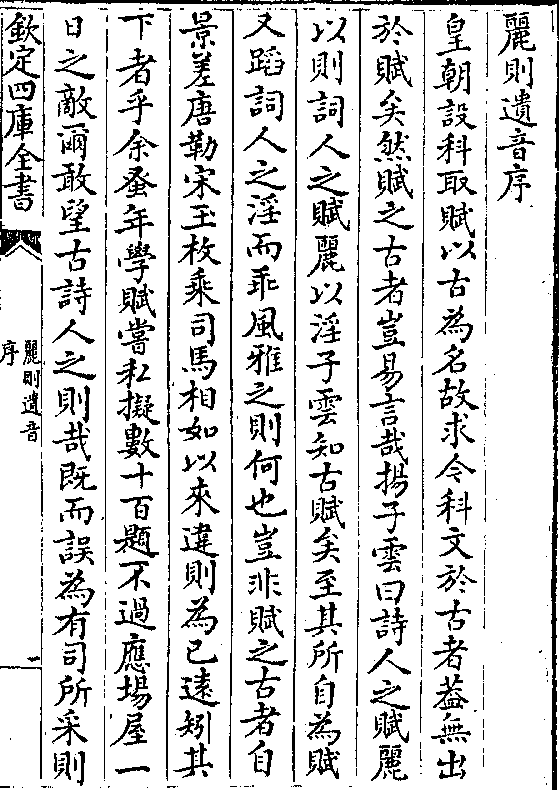 麗則遺音序
皇朝設科取賦以古為名故求今科文於古者葢無出
於賦矣然賦之古者豈易言哉揚子雲曰詩人之賦麗
以則詞人之賦麗以淫子雲知古賦矣至其所自為賦
又蹈詞人之淫而乖風雅之則何也豈非賦之古者自
景差唐勒宋玉枚乘司馬相如以來違則為已遠矧其
下者乎余蚤年學賦嘗私擬數十百題不過應場屋一
日之敵爾敢望古詩人之則哉既而誤為有司所采則
欽定四庫全書
麗則遺音
序
一